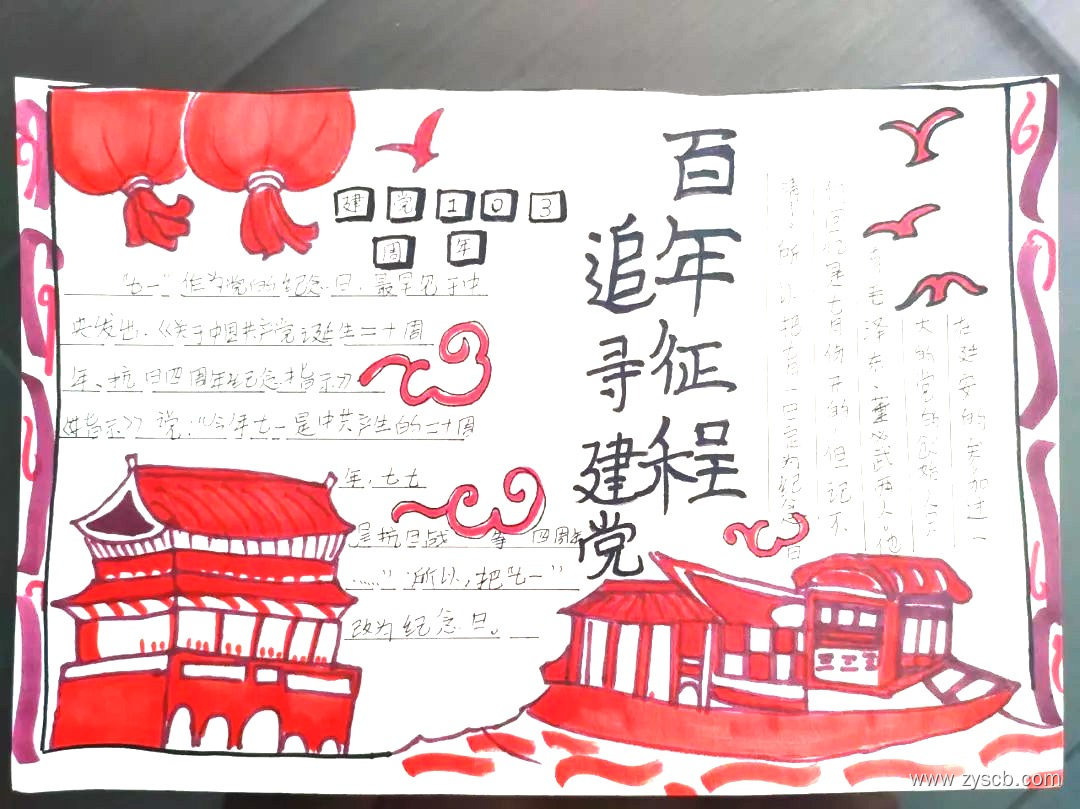 建党103
周年
百年征程
追寻建党
"七一"作为党的纪念日,最早见于中
央发出《关于中国共产党诞生二十周
年、抗日四周年纪念指示》
指示》说:"今年七一是中共产生的二十周
年,七七
是抗日战 等 四周年
……"所以,把"七一"
改为纪念日。
在延安的参加过一
大的党的创始人只
有毛泽东、董必武两人。他
们回忆是七月份开的,但记不
清 所以把七一四定为纪念日
www.zyscb.com